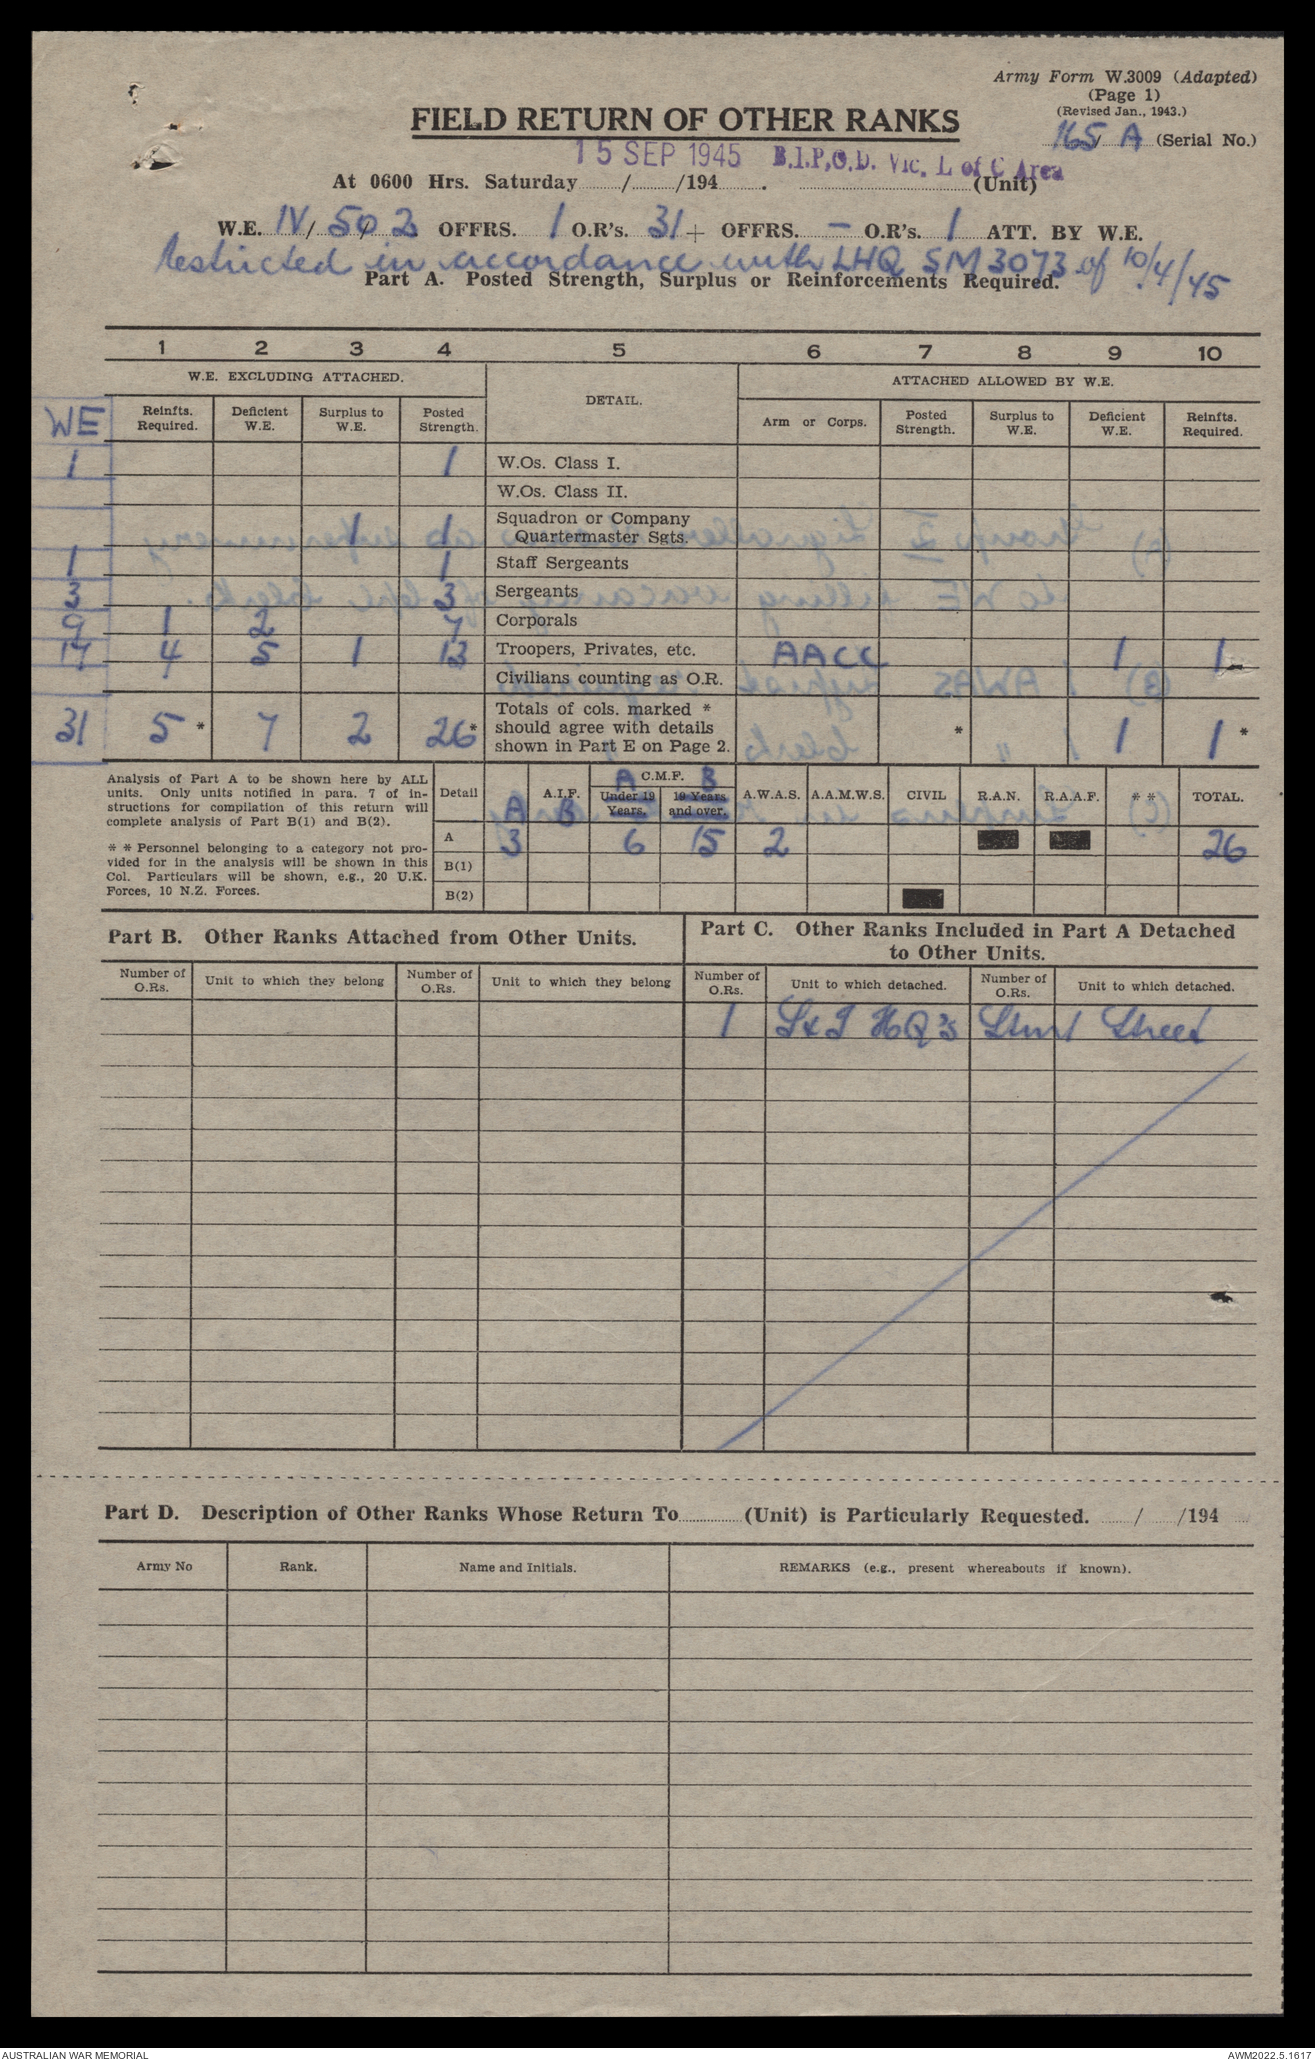 Army Form W.3009 (Adapted)
(Page 1)
(Revised Jan., 1943.)
165 A (Serial No.)
FIELD RETURN OF OTHER RANKS
15 SEP 1945 B.I.P.O.D. Vic. L of C Area
At 0600 Hrs. Saturday / /194 . (Unit)
W.E. IV / 50 / 2 OFFRS. 1 O.R's. 31 + OFFRS. – O.R's. 1 ATT. BY W.E.
Restricted in accordance with LHQ SM 3073 of 10/4/45
Part A. Posted Strength, Surplus or Reinforcements Required.
1 2 3 4 5 6 7 8 9 10
W.E. EXCLUDING ATTACHED. DETAIL. ATTACHED ALLOWED BY W.E.
WE Reinfts. Required. Deficient W.E. Surplus to W.E. Posted Strength. Arm or Corps. Posted Strength. Surplus to W.E. Deficient W.E. Reinfts. Required.
1 1 W.Os. Class I.
W.Os. Class II.
1 1 Squadron or Company Quartermaster Sgts.
1 1 Staff Sergeants
3 3 Sergeants
9 1 2 7 Corporals
17 4 5 1 13 Troopers, Privates, etc. AACC 1 1
Civilians counting as O.R.
31 5 * 7 2 26 * Totals of cols. marked * should agree with details shown in Part E on Page 2. * 1 1 *
Analysis of Part A to be shown here by ALL units. Only units notified in para. 7 of instructions for compilation of this return will complete analysis of Part B(1) and B(2).
* * Personnel belonging to a category not provided for in the analysis will be shown in this Col. Particulars will be shown, e.g., 20 U.K. Forces, 10 N.Z. Forces.
Detail A A.I.F. B A C.M.F. B Under 19 Years. 19 Years and over. A.W.A.S. A.A.M.W.S. CIVIL R.A.N. R.A.A.F. * * TOTAL.
A 3 6 15 2 26
B(1)
B(2)
Part B. Other Ranks Attached from Other Units.
Part C. Other Ranks Included in Part A Detached to Other Units.
Number of O.Rs. Unit to which they belong Number of O.Rs. Unit to which they belong Number of O.Rs. Unit to which detached. Number of O.Rs. Unit to which detached.
1 S & T HQ's Sturt Street
Part D. Description of Other Ranks Whose Return To (Unit) is Particularly Requested. / /194
Army No Rank. Name and Initials. REMARKS (e.g., present whereabouts if known).
AUSTRALIAN WAR MEMORIAL AWM2022.5.1617